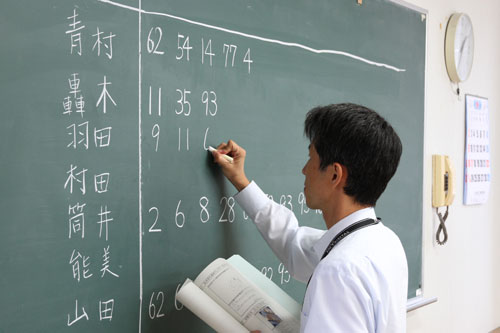 青村 62 54 14 77 4
轟木 11 35 93
羽田 9 11
村田
筒井 2 6 8 28
能美
山田 62